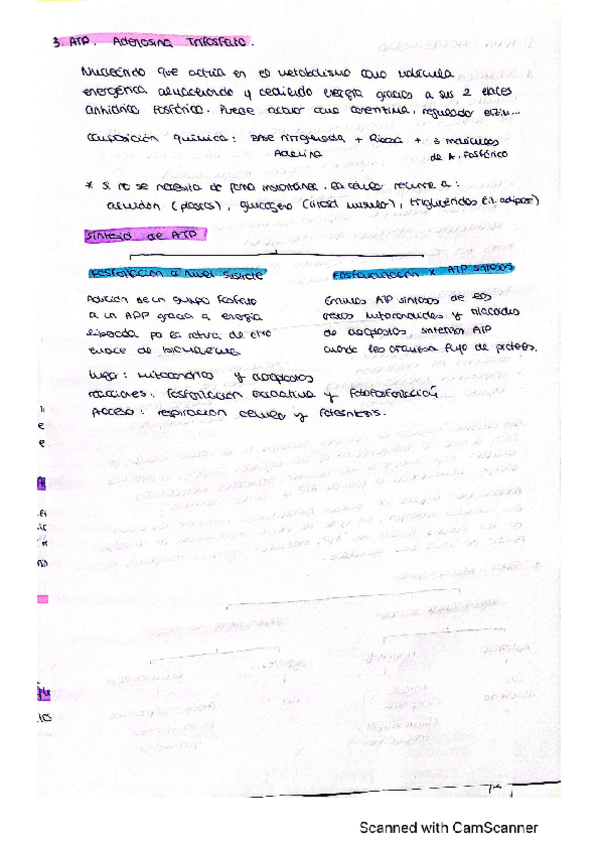 3. ATP. Adenosina Trifosfato.
Nucleótido que actúa en el metabolismo como molécula
energética, almacenando y cediendo energía gracias a sus 2 enlaces
anhídrido fosfórico. Puede actuar como coenzima, regulador enzim...
Composición química: Base nitrogenada + Ribosa + 3 moléculas
Adenina de A. Fosfórico
* Si no se necesita de forma instantánea. La célula recurre a:
almidón (plantas), glucógeno (), triglicéridos (en adipos)
Síntesis de ATP
Fosforilación a nivel sustrato
Fosforilación x ATP sintasas
Adición de un grupo fosfato
a un ADP gracia a energía
liberada por la rotura de otro
enlace de
Enzimas ATP sintasas de las
crestas mitocondriales y tilacoides
de cloroplastos, sintetizan ATP
cuando las atraviesa flujo de protones.
Lugar: mitocondrias y cloroplastos
reacciones: Fosforilación oxidativa y fotofosforilación
Acceso: respiración celular y fotosíntesis.
Scanned with CamScanner